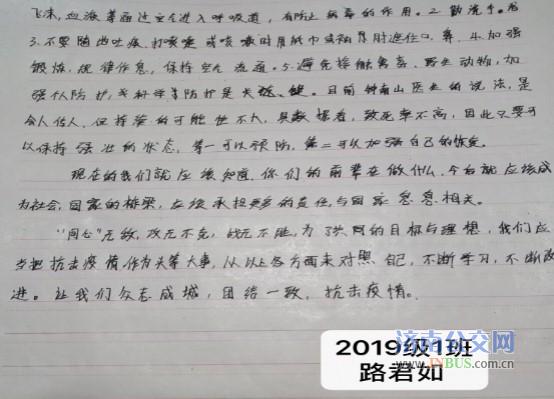 飞沫,血液等通过空气进入呼吸道,有防止病毒的作用。2.勤洗手。
3.不要随地吐痰,打喷嚏或咳嗽时用纸巾或袖肘遮住口、鼻。4.加强
锻炼,规律作息,保持空气流通。5.避免接触禽畜、野生动物,加
强个人防护,科学等防护是关键。目前钟南山医生的说法,是
会人传人,但持续的可能性不大,具数据看,致死率不高,因此只要可
以保持强壮的状态,第一可以预防,第二可以加强自己的恢复。
现在的我们就应该知道,你们的前辈在做什么,今后就应该成
为社会,国家的栋梁,应该承担更多的责任,与国家息息相关。
"同心"无敌,攻无不克,战无不胜,为了共同的目标与理想,我们应
当把抗击疫情作为头等大事,从以上各方面来对照自己,不断学习,不断改
进。让我们众志成城,团结一致,抗击疫情。
2019级1班
路君如
济南公交网
WWW.JNBUS.COM.CN